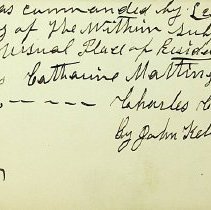 as commanded by Le
of the Within Sub
Usual Place of Reside
Catharine Matting
Charles C
By John Kel